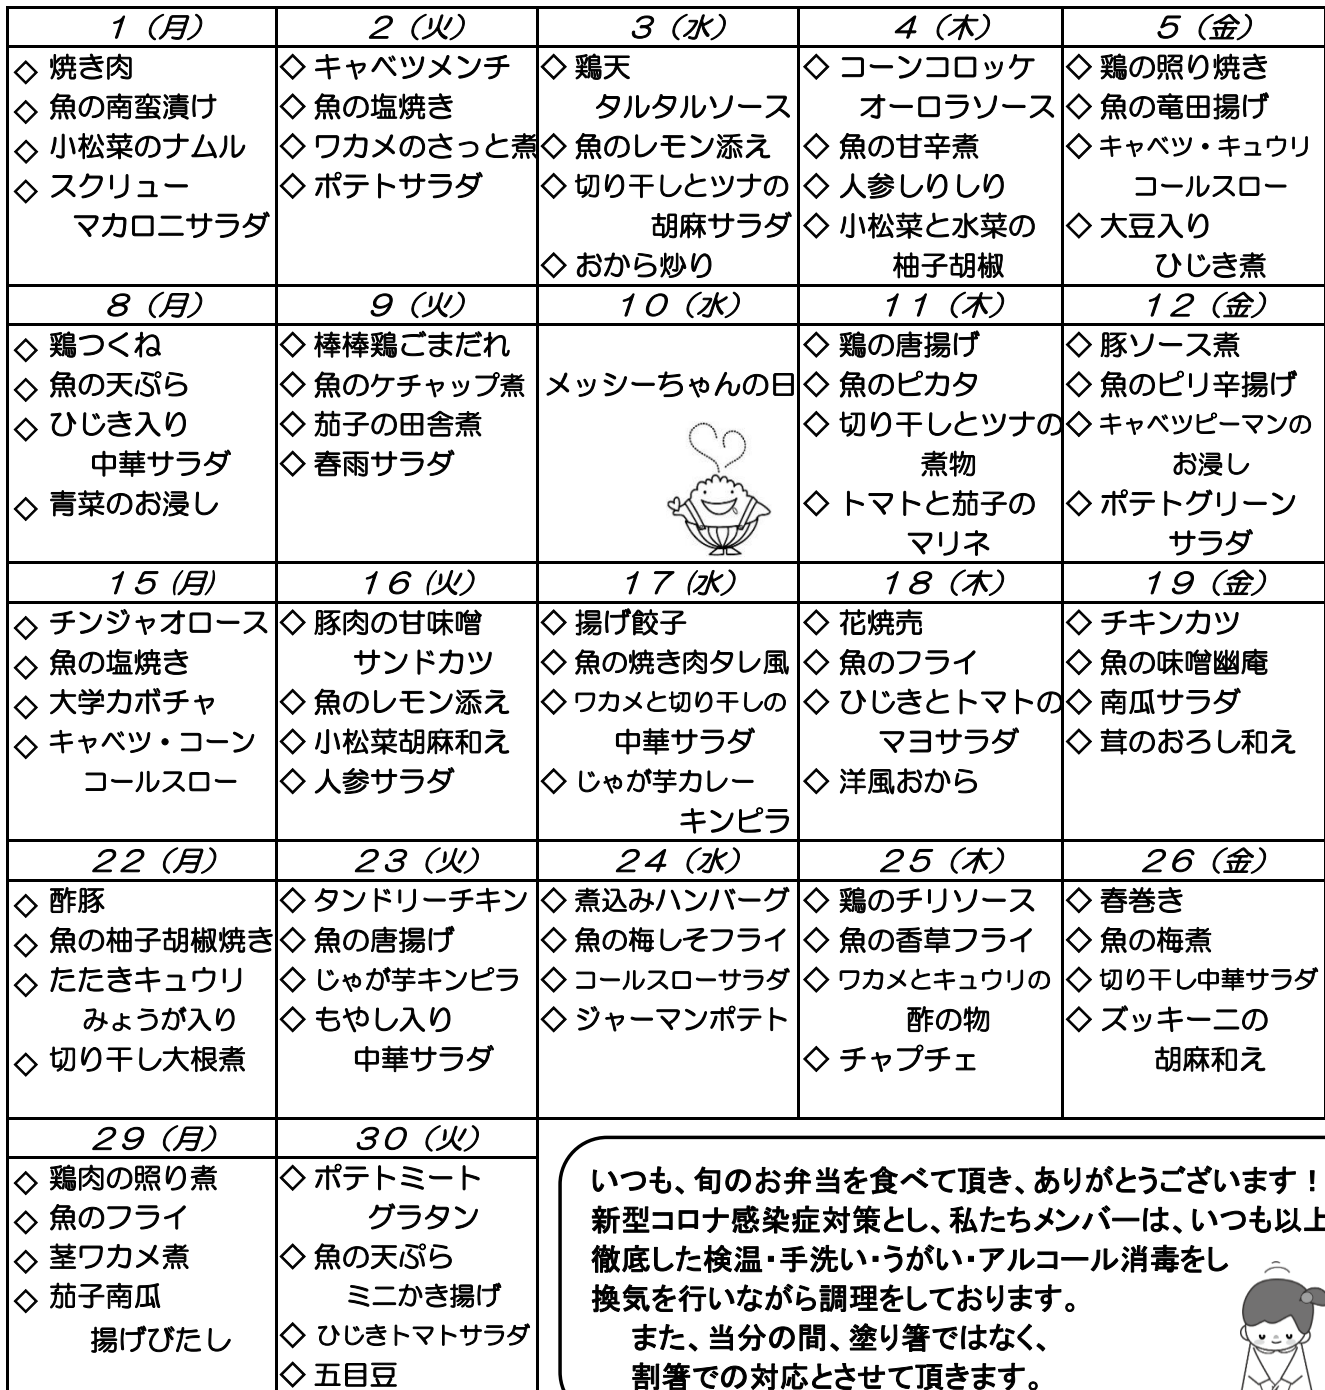 1（月）
◇ 焼き肉
◇ 魚の南蛮漬け
◇ 小松菜のナムル
◇ スクリュー
マカロニサラダ
2（火）
◇ キャベツメンチ
◇ 魚の塩焼き
◇ ワカメのさっと煮
◇ ポテトサラダ
3（水）
◇ 鶏天
タルタルソース
◇ 魚のレモン添え
◇ 切り干しとツナの
胡麻サラダ
◇ おから炒り
4（木）
◇ コーンコロッケ
オーロラソース
◇ 魚の甘辛煮
◇ 人参しりしり
◇ 小松菜と水菜の
柚子胡椒
5（金）
◇ 鶏の照り焼き
◇ 魚の竜田揚げ
◇ キャベツ・キュウリ
コールスロー
◇ 大豆入り
ひじき煮
8（月）
◇ 鶏つくね
◇ 魚の天ぷら
◇ ひじき入り
中華サラダ
◇ 青菜のお浸し
9（火）
◇ 棒棒鶏ごまだれ
◇ 魚のケチャップ煮
◇ 茄子の田舎煮
◇ 春雨サラダ
10（水）
メッシーちゃんの日
11（木）
◇ 鶏の唐揚げ
◇ 魚のピカタ
◇ 切り干しとツナの
煮物
◇ トマトと茄子の
マリネ
12（金）
◇ 豚ソース煮
◇ 魚のピリ辛揚げ
◇ キャベツピーマンの
お浸し
◇ ポテトグリーン
サラダ
15（月）
◇ チンジャオロース
◇ 魚の塩焼き
◇ 大学カボチャ
◇ キャベツ・コーン
コールスロー
16（火）
◇ 豚肉の甘味噌
サンドカツ
◇ 魚のレモン添え
◇ 小松菜胡麻和え
◇ 人参サラダ
17（水）
◇ 揚げ餃子
◇ 魚の焼き肉タレ風
◇ ワカメと切り干しの
中華サラダ
◇ じゃが芋カレー
キンピラ
18（木）
◇ 花焼売
◇ 魚のフライ
◇ ひじきとトマトの
マヨサラダ
◇ 洋風おから
19（金）
◇ チキンカツ
◇ 魚の味噌幽庵
◇ 南瓜サラダ
◇ 茸のおろし和え
22（月）
◇ 酢豚
◇ 魚の柚子胡椒焼き
◇ たたきキュウリ
みょうが入り
◇ 切り干し大根煮
23（火）
◇ タンドリーチキン
◇ 魚の唐揚げ
◇ じゃが芋キンピラ
◇ もやし入り
中華サラダ
24（水）
◇ 煮込みハンバーグ
◇ 魚の梅しそフライ
◇ コールスローサラダ
◇ ジャーマンポテト
25（木）
◇ 鶏のチリソース
◇ 魚の香草フライ
◇ ワカメとキュウリの
酢の物
◇ チャプチェ
26（金）
◇ 春巻き
◇ 魚の梅煮
◇ 切り干し中華サラダ
◇ ズッキーニの
胡麻和え
29（月）
◇ 鶏肉の照り煮
◇ 魚のフライ
◇ 茎ワカメ煮
◇ 茄子南瓜
揚げびたし
30（火）
◇ ポテトミート
グラタン
◇ 魚の天ぷら
ミニかき揚げ
◇ ひじきトマトサラダ
◇ 五目豆
いつも、旬のお弁当を食べて頂き、ありがとうございます！
新型コロナ感染症対策とし、私たちメンバーは、いつも以上
徹底した検温・手洗い・うがい・アルコール消毒をし
換気を行いながら調理をしております。
また、当分の間、塗り箸ではなく、
割箸での対応とさせて頂きます。